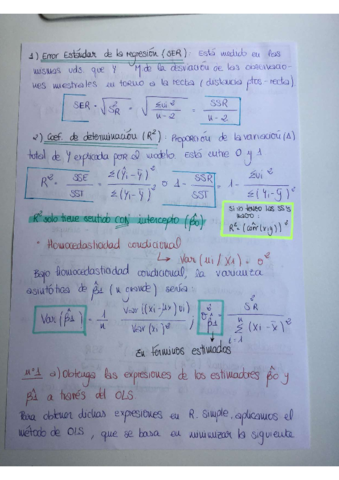 1) Error Estándar de la regresión (SER): Está medido en las
mismas uds. que Y M de la desviación de las observacio-
nes muestrales en torno a la recta (distancia ptos-recta)
SER = √S²R = √Σui² / n-2 = SSR / n-2
2) Coef. de determinación (R²): Proporción de la variación (Δ)
total de Y explicada por el modelo. está entre 0 y 1
R² = SSE / SST = Σ(Ŷi - Ȳ)² / Σ(Yi - Ȳ)² o 1 - SSR / SST = 1 - Σui² / Σ(Yi - Ȳ)²
R² solo tiene sentido con intercepto (β̂0)
si no tengo las
hago:
R² = (corr(x,y))²
* Homocedastiadad condicional
↳ Var(ui / Xi) = σ²
Bajo homocedastiadad condicional, la varianza
asintótica de β̂1 (n grande) sería:
Var(β̂1) = 1/n Var[(Xi - μx)ui] / Var(Xi)² ; σ̂²β̂1 = S²R / Σ(Xi - x̄)²
n
i=1
En términos estimados
nº1 a) Obtenga las expresiones de los estimadores β̂0 y
β̂1 a través del OLS
Para obtener dichas expresiones en R. Simple, aplicamos el
método de OLS, que se basa en minimizar la siguiente